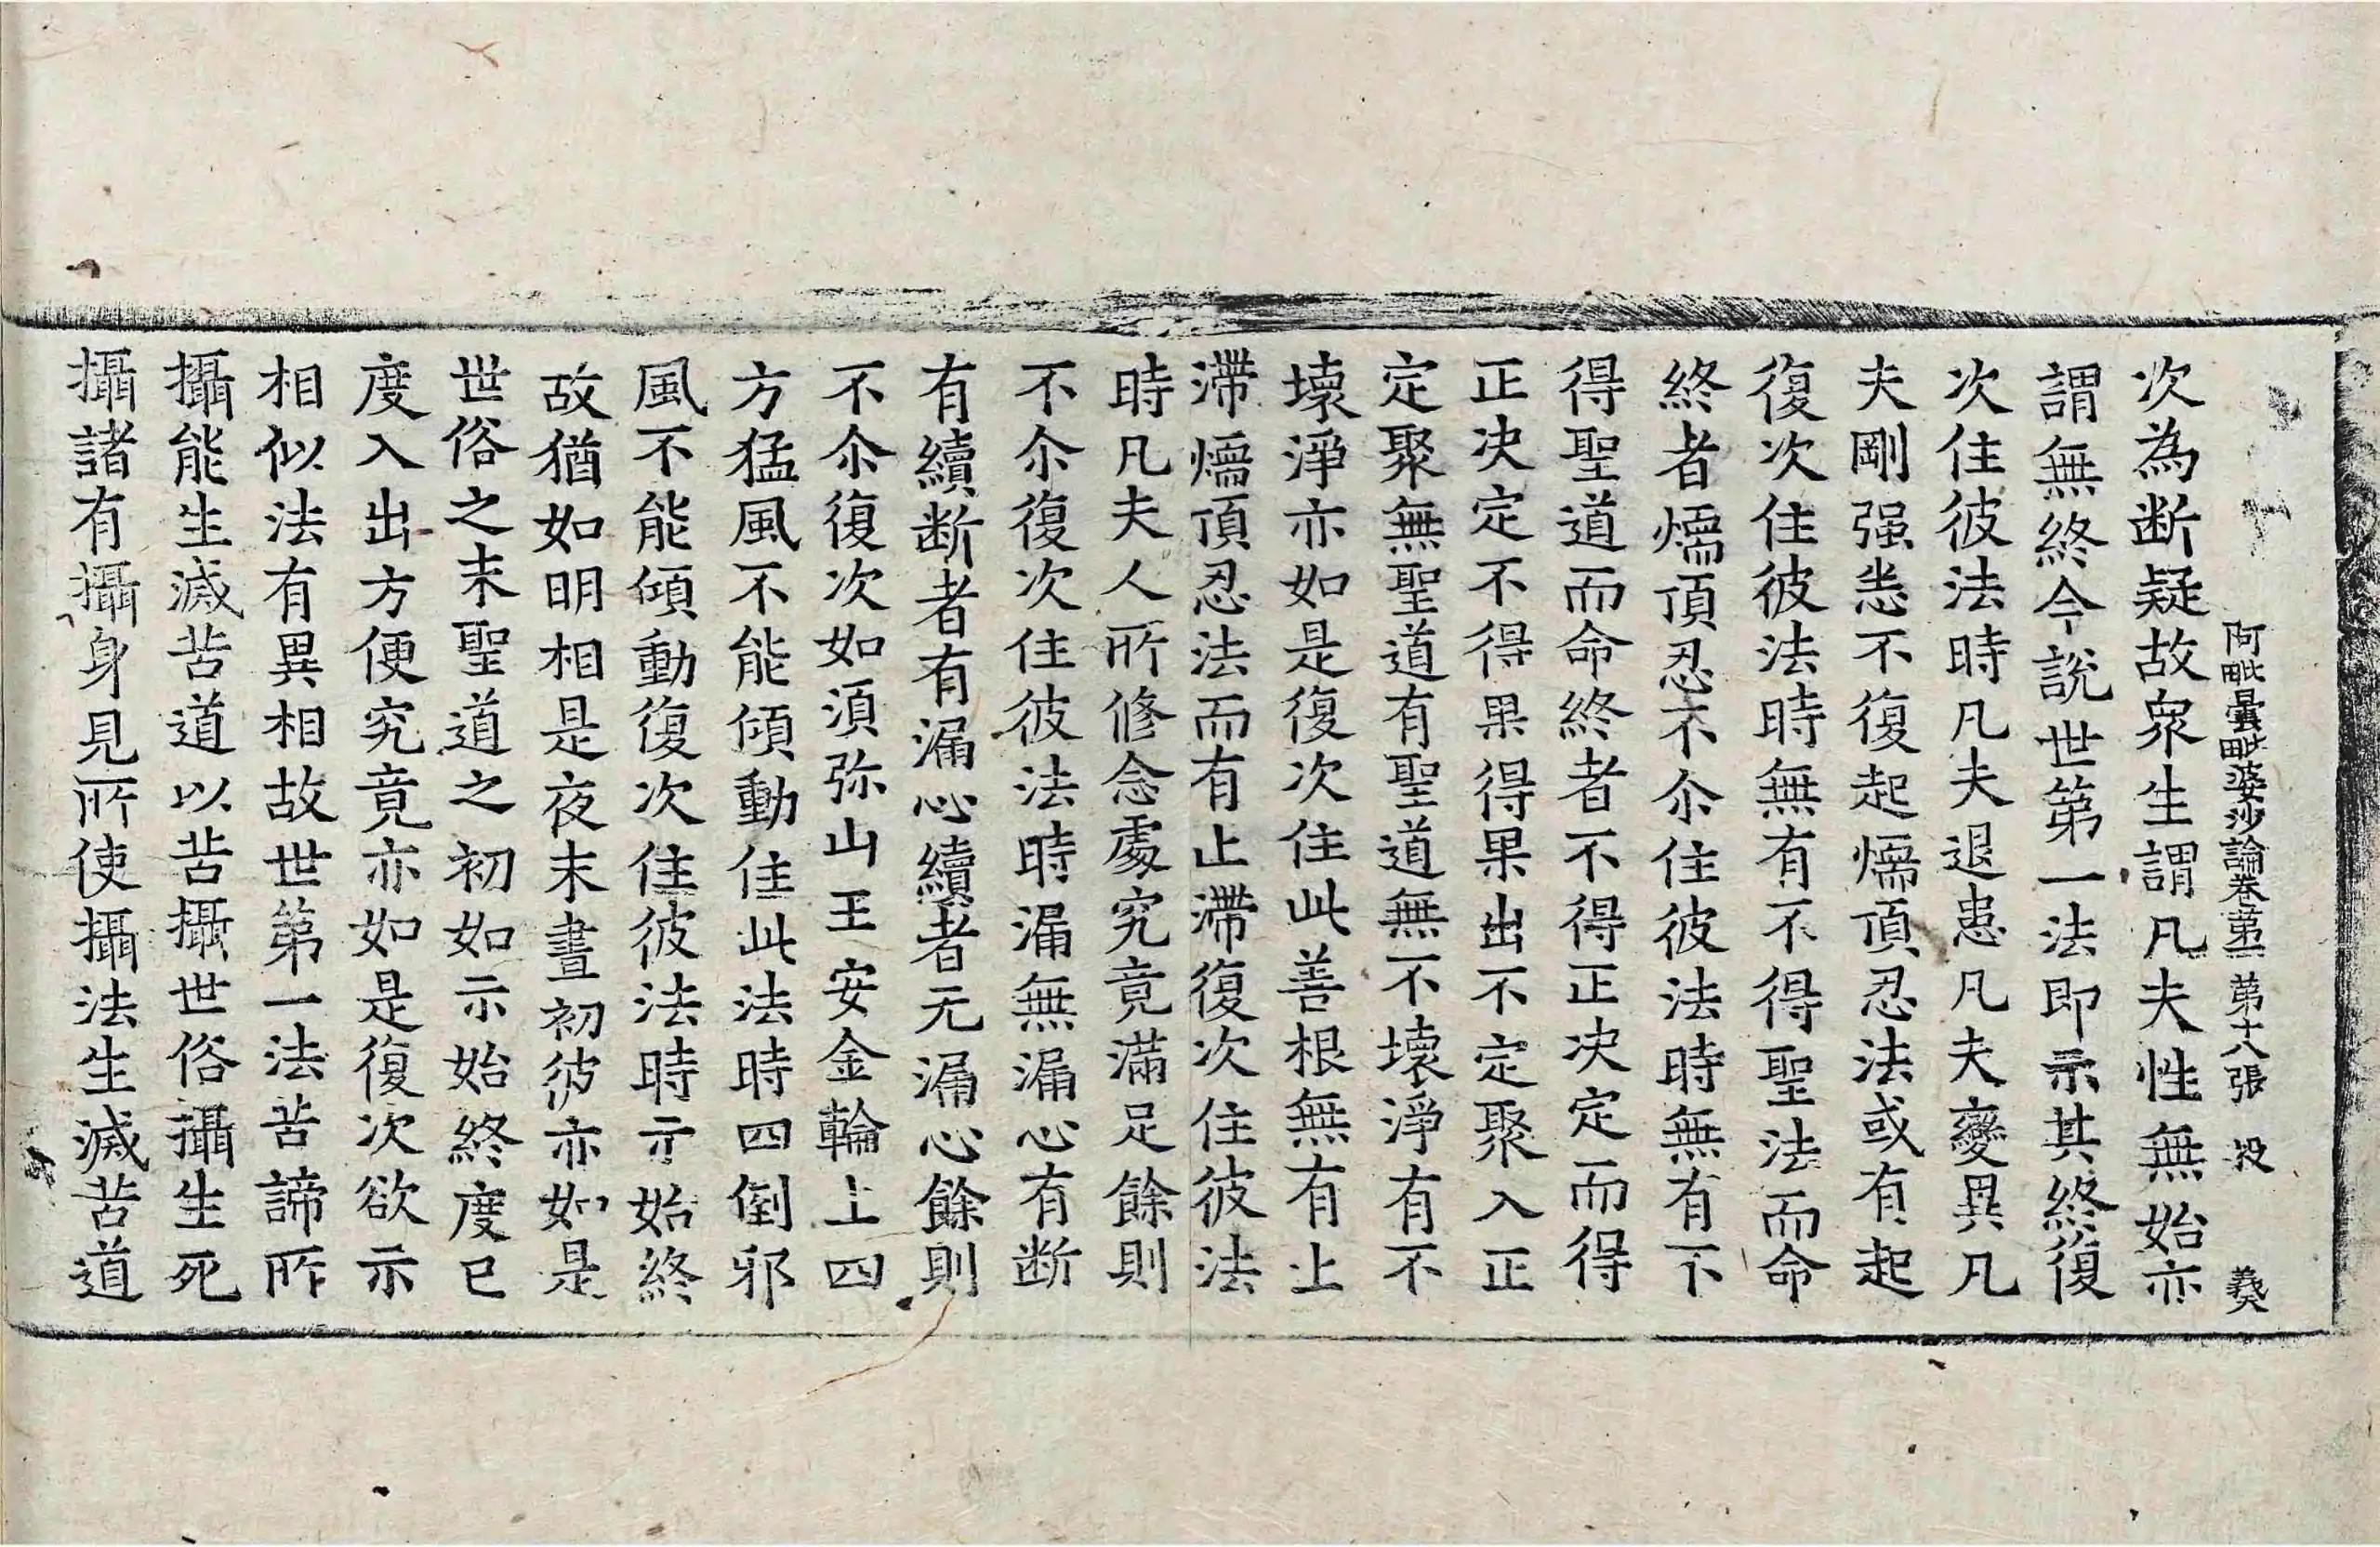 阿毗曇毗婆沙論卷第一 第十八張 投 義
次為断疑故衆生謂凡夫性無始亦
謂無終今說世第一法即示其終復
次住彼法時凡夫退患凡夫變異凡
夫剛强恚不復起燸頂忍法或有起
復次住彼法時無有不得聖法而命
終者燸頂忍不尒住彼法時無有不
得聖道而命終者不得正決定而得
正決定不得果得果出不定聚入正
定聚無聖道有聖道無不壞淨有不
壞淨亦如是復次住此善根無有止
滯燸頂忍法而有止滯復次住彼法
時凡夫人所修念處究竟滿足餘則
不尒復次住彼法時漏無漏心有断
有續断者有漏心續者无漏心餘則
不尒復次如須弥山王安金輪上四
方猛風不能傾動住此法時四倒邪
風不能傾動復次住彼法時示始終
故猶如明相是夜末晝初彼亦如是
世俗之末聖道之初如示始終度已
度入出方便究竟亦如是復次欲示
相似法有異相故世第一法苦諦所
攝能生滅苦道以苦攝世俗攝生死
攝諸有攝身見所使攝法生滅苦道